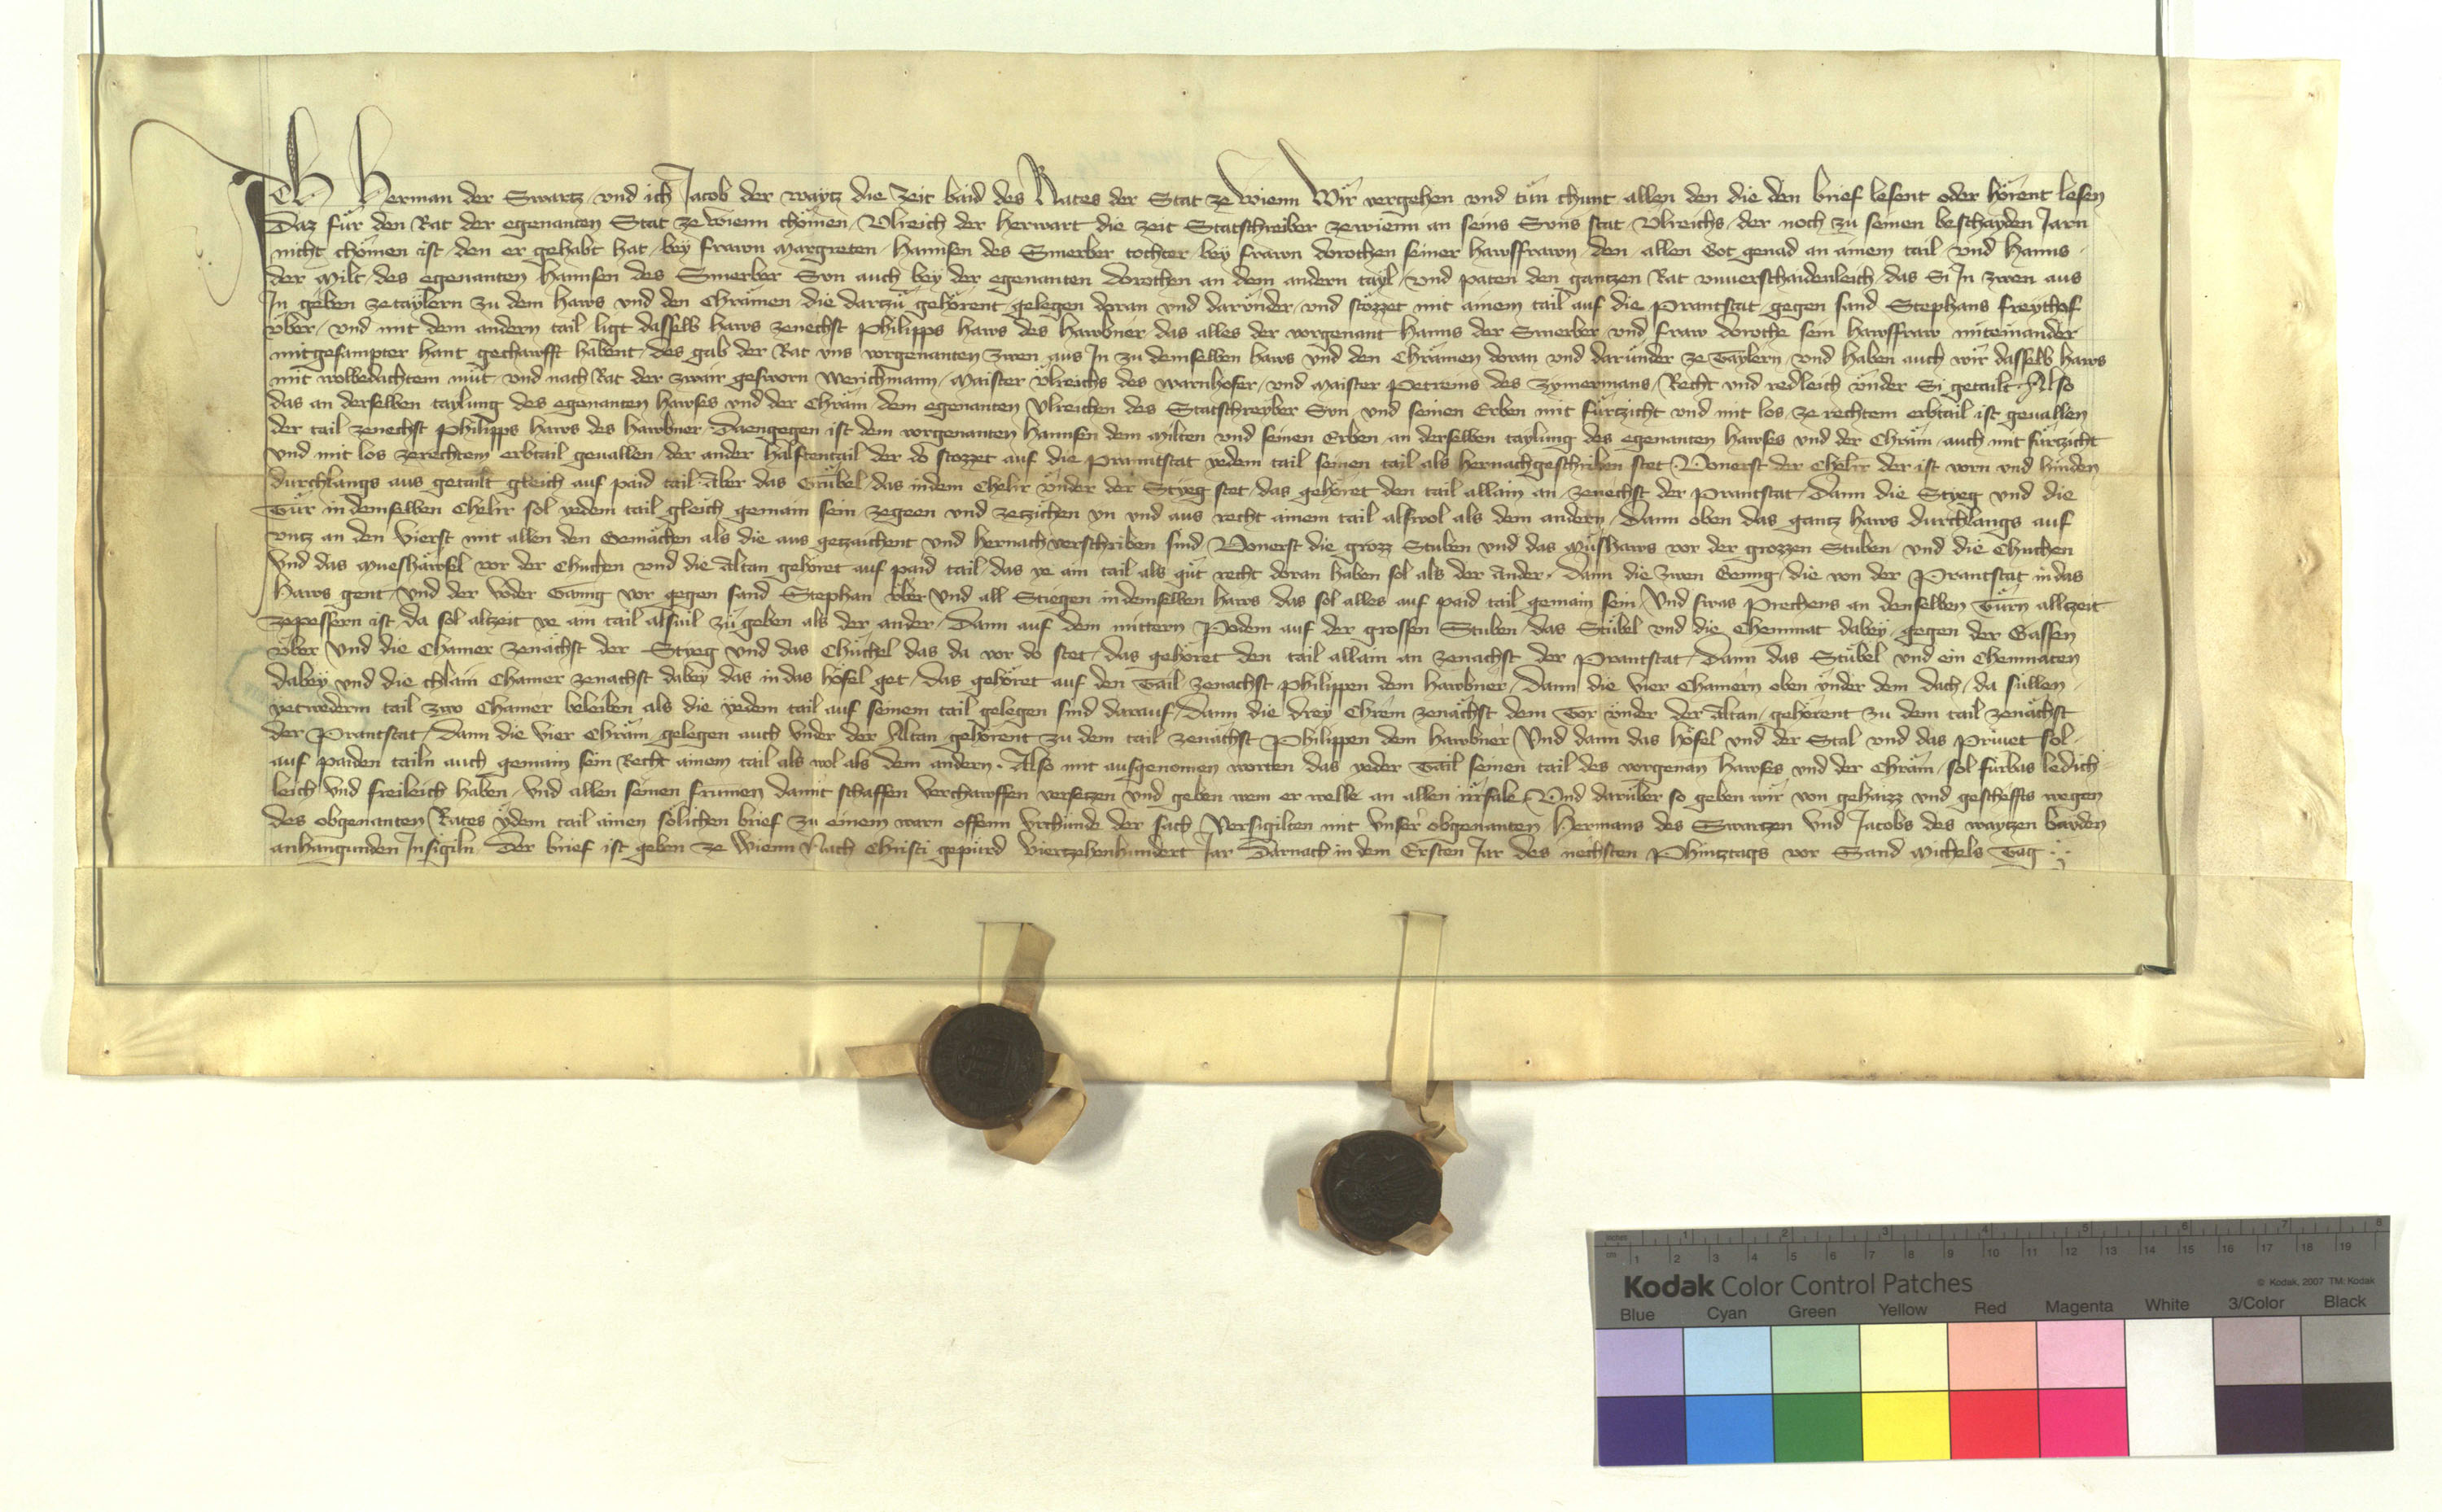 Ich Herman der Swartz und ich Jacob der waytz die Zeit baid des Rates der Stat ze wienn Wir vergehen und tün chunt allen den die den brief lesent oder hörent lesen
Daz für den Rat der egenanten Stat ze wienn chömen Ulreich der Herwart die zeit Statschreiber zewienn an seins Suns stat Ulreichs der noch zu seinen beschayden Jarn
nicht chömen ist den er gehabt hat bey frawn Margreten Hannsen des Smerber tochter bey frawn dorothen seiner hawsfrawn den allen Got genad an ainem tail und Hanns
der Milt des egenanten Hannsen des Smerber Sun auch bey der egenanten dorothen an dem andern tayl und paten den gantzen Rat unverschaidenleich das Si In zwen aus
In geben zetaylern zu dem haws und den Chrämen die dartzü gehörent gelegen doran und darunder und stözzet mit ainem tail auf die Prantstat gegen sand Stephans freythof
über und mit dem andern tail ligt dasselb haws zenechst Philipps haws des hawbner das alles der vorgenant Hanns der Smerber und fraw dorothe sein hawsfraw miteinander
mitgesampter hant gechawfft habent des gab der Rat uns vorgenanten zwen aus In zu demselben haws und den Chrämen doran und darunder ze Taylern und haben auch wir dasselb haws
mit wolbedachtem müt und nach Rat der zwair gesworn Werichmann Maister Ulreichs des warnhofer und Maister Petreins des Zymermans Recht und redleich under Si getailt Also
das an derselben taylung des egenanten hawses und der Chräm dem egenanten Ulreichen des Statschreyber Sun und seinen Erben mit fürtzicht und mit los ze rechtem erbtail ist gevallen
der tail zenechst Philipps haws des hawbner Daengegen ist dem vorgenanten Hannsen dem Milten und seinen Erben an derselben taylung des egenanten hawses und der Chräm auch mit fürtzicht
und mit los zerechtem erbtail gevallen der ander halftentail der do stozzet auf die Prantstat yedem tail seinen tail als hernachgeschriben stet Vonerst der Chelr der ist vorn und hinden
durchlangs aus getailt gleich auf paid tail Aber das Stübel das indem Chelir under der Styeg stet das gehöret den tail allain an zenechst der Prantstat Dann die Styeg und die
Tür in demselben Chelir sol yedem tail gleich gemain sein zegeen und zetziehen yn und aus recht ainem tail alswol als dem andern Dann oben das gantz haws durchlangs auf
untz an den Vierst mit allen den Gemächen als die aus getzaichent und hernach verschriben sind Vonerst die grozz Stuben und das Müshaws vor der grozzen Stuben und die Chuchen
Und das mueshäwsel vor der Chuchen und die Altan gehöret auf paid tail das ye ain tail als güt recht doran haben sol als der ander Dann die zwen Genng die von der Prantstat in das
haws gent und der voder Ganng vor gegen sand Stephan über und all Stiegen in demselben haws das sol alles auf paid tail gemain sein Und swas Prechens an denselben Türn alltzeit
zepessern ist da sol altzeit ye ain tail alsvil zü geben als der ander Dann auf dem mittern Podem auf der grossen Stuben das Stübel und die Chemnat dabey gegen der Gassen
über Und die Chamer zenächst der Styeg und das Chuchel das da vor do stet das gehöret den tail allain an zenachst der Prantstat Dann das Stübel und ein Chemnaten
dabey und die chlain Chamer zenachst dabey das in das höfel get das gehöret auf den Tail zenachst Philippen dem hawbner Dann die vier Chamern oben under dem dach da süllen
yetwederm tail zwo Chamer beleiben als die yedem tail auf seinem tail gelegen sind darauf Dann die drey Chrem zenächst dem Tor under der Altan gehörent zu dem tail zenächst
der Prantstat Dann die vier Chräm gelegen auch under der Altan gehörent zu dem tail zenächst Philippen dem hawbner Und dann das höfel und der Stal und das Privet sol
auf paiden tailn auch gemain sein Recht ainem tail als wol als dem andern Also mit ausgenomen worten das yeder Tail seinen tail des vorgenan hawses und der Chräm sol fürbas ledich
leich und freileich haben und allen seinen frumen damit schaffen verchawffen versetzen und geben wem er welle an allen irrsale Und darüber so geben wir von gehaizz und gescheffts wegen
des obgenanten Rates ydem tail ainen sölichen brief zu einem warn offenn urchünde der sach Versigilten mit unser obgenanten Hermans des Swartzen und Jacobs des waytzen bayden
anhangunden Insigiln Der brief ist geben ze Wienn Nach Christi gepürd Viertzehenhundert Jar Darnach in dem Ersten Jar des nechsten Phintztags vor Sand Michels Tag
Kodak Color Control Patches
© Kodak, 2007 TM: Kodak
Blue Cyan Green Yellow Red Magenta White 3/Color Black